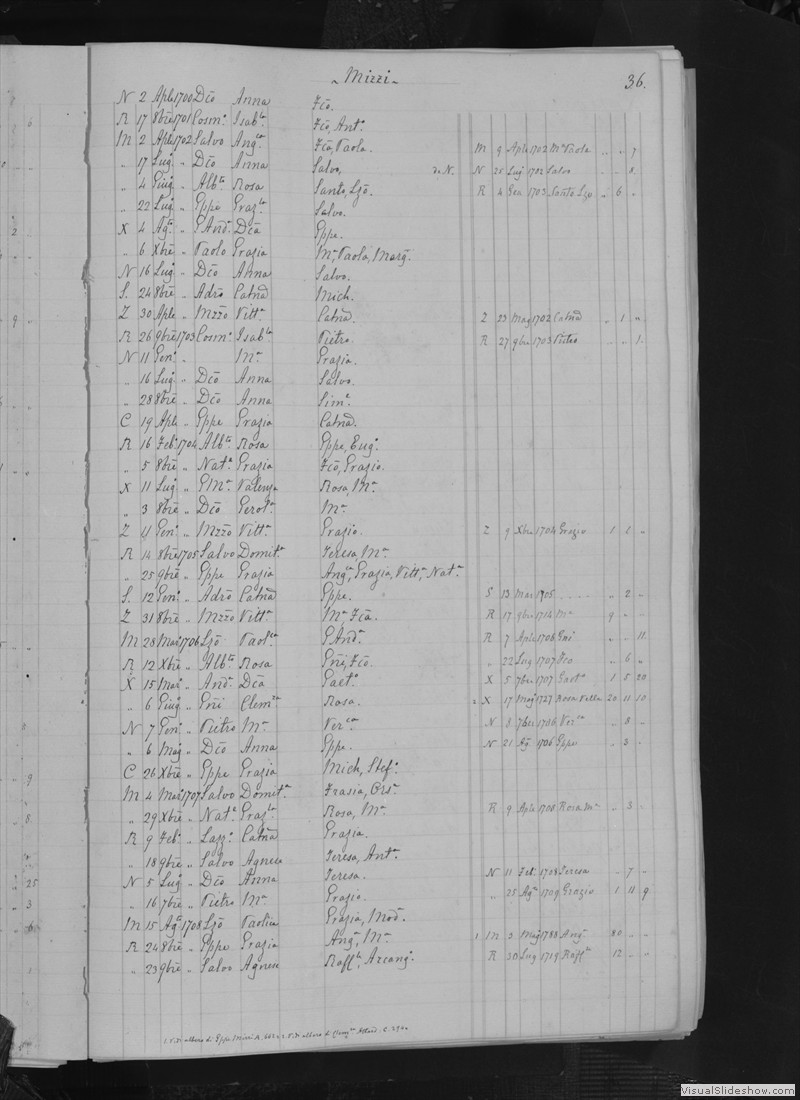 ~ Mizzi ~ 36.
N 2 Aple 1700 Dco Anna Fco.
R 17 8bre 1701 Cosmo Isabla Fco, Anto.
M 2 Aple 1702 Salvo Angca Fca, Paola. M 9 Aple 1702 Ma Paola „ „ 7
„ 17 Lugo „ Dco Anna Salvo, N 25 Lugo 1702 Salvo - - 8.
„ 4 Giugo „ Albto Rosa Santo, Lzo. R 4 Gen 1703 Santo Lzo „ 6 „
„ 22 Lugo „ Gppe Grazla Salvo.
X 4 Agto „ G Anda Dca Gppe.
„ 6 Xbre „ Paolo Grazia Ma, Paola, Marga.
N 16 Lugo „ Dco Anna Salvo.
S. 24 8bre „ Adro Catna Mich.
Z 30 Aple „ Mzzo Vitta Catna. Z 23 Mago 1702 Catna „ 1 „
R 26 9bre 1703 Cosmo Isabla Pietro. R 27 9bre 1703 Pietro „ „ 1.
N 11 Geno „ Ma Grazia.
„ 16 Lugo „ Dco Anna Salvo.
„ 28 8bre „ Dco Anna Sime
C 19 Aple „ Gppe Grazia Catna.
R 16 Febo 1704 Albto Rosa Gppe, Eugo.
„ 5 8bre „ Nate Grazia Fco, Grazio.
X 11 Lugo „ GMa Valenza Rosa, Ma.
„ 3 8bre „ Dco Gerola Ma
Z 4 Geno „ Mzzo Vitta Grazio. Z 9 Xbre 1704 Grazio 1 2 „
R 14 8bre 1705 Salvo Domita Teresa, Ma
„ 25 9bre „ Gppe Grazia Angca, Grazia, Vitta, Nata
S. 12 Geno „ Adro Catna Gppe. S 13 Mar 1705 . . . . . „ 2 -
Z 31 8bre „ Mzzo Vitta Ma, Fca. R 17 9bre 1714 Ma 9 - -
M 28 Maro 1706 Lzo Paolla G Anda R 7 Aple 1706 - - 11.
R 12 Xbre „ Albto Rosa Gni, Fco. „ 22 Lug 1707 „ 6 „
X 15 Maro „ Ando Dca Gaeto X 5 7bre 1707 Gaeto 1 5 20
„ 6 Giugo „ Gni Clemza Rosa. 2 X 17 Mago 1727 Rosa 20 11 10
N 7 Geno „ Pietro Ma Verca N 8 7bre 1706 Verca „ 8 -
„ 6 Mago „ Dco Anna Gppe. N 21 Ago 1706 Gppe „ 3 -
C 26 Xbre „ Gppe Grazia Mich, Stefo.
M 4 Maro 1707 Salvo Domita Grazia, Orsa
„ 29 Xbre „ Nate Grazla Rosa, Ma R 9 Aple 1708 Rosa Ma „ 3 -
R 9 Febo „ Lazzo Catna Grazia.
„ 18 9bre „ Salvo Agnese Teresa, Anta
N 5 Lugo „ Dco Anna Teresa. N 11 Feb. 1708 Teresa - 7 -
„ 16 7bre „ Pietro Ma Grazio. „ 25 Ago 1709 Grazio 1 11 9
M 15 Agto 1708 Lzo Paolica Grazia, Moda.
R 24 8bre „ Gppe Grazia Anga, Ma 1 M 3 Mago 1788 Anga 80 - -
„ 23 9bre „ Salvo Agnese Raffla, Arcango. R 30 Lug 1719 Raffla 12 - „
VisualSlideshow.com